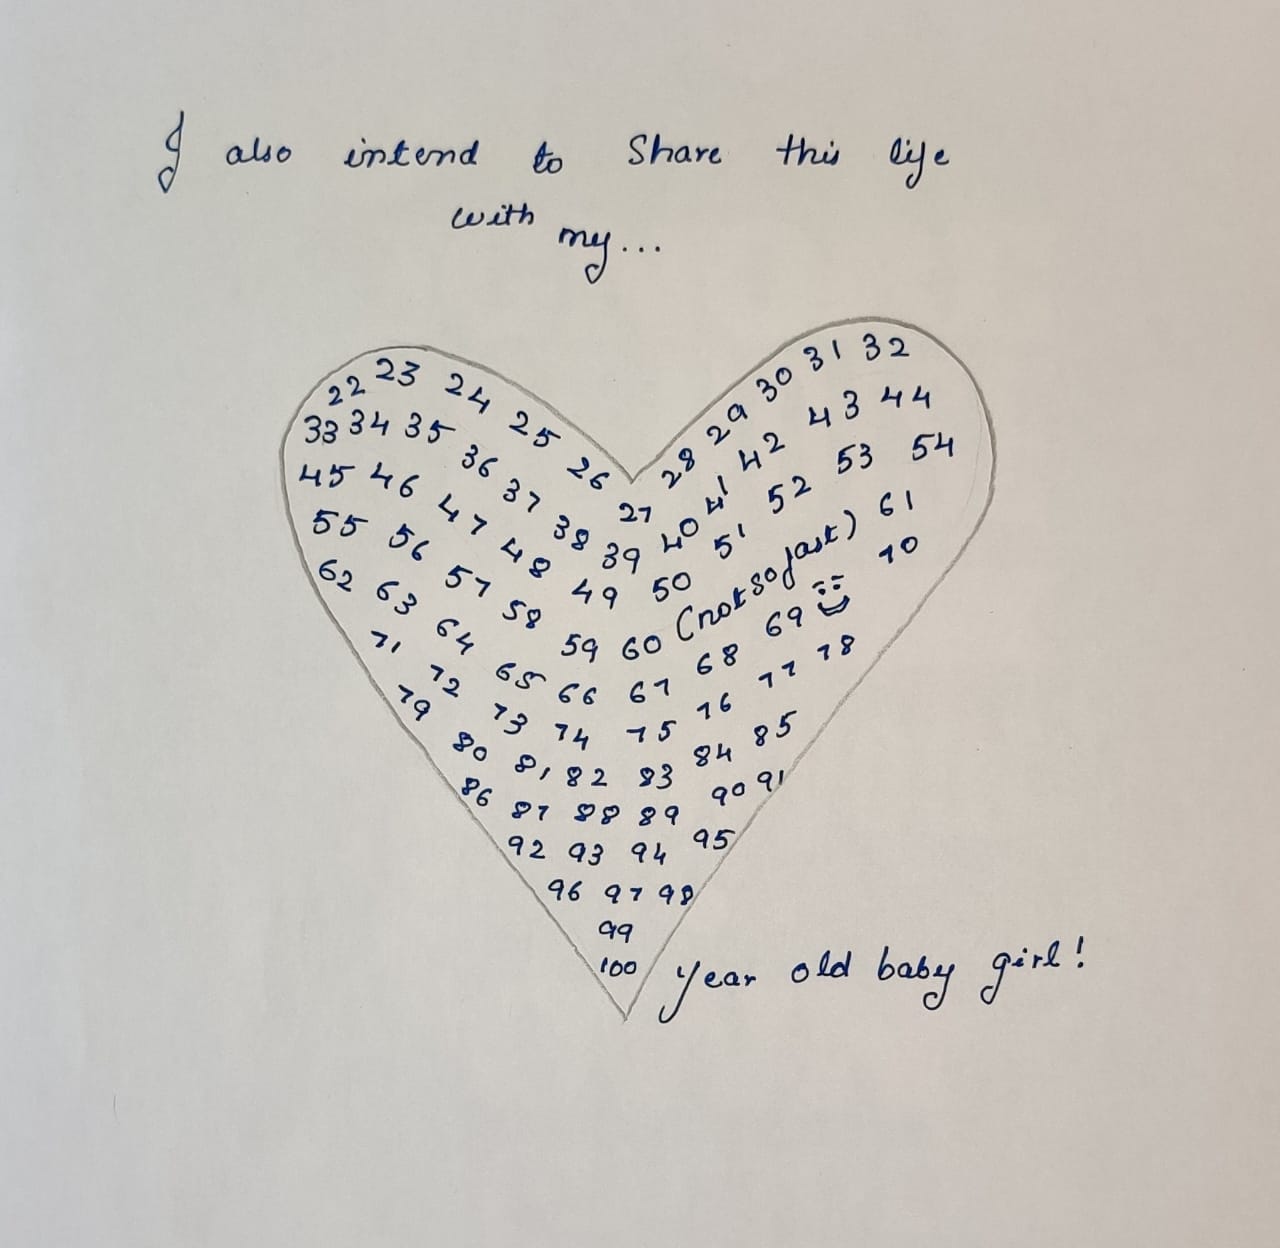 I also intend to Share this life
with my...
22 23 24 25 26 27 28 29 30 31 32
33 34 35 36 37 38 39 40 41 42 43 44
45 46 47 48 49 50 51 52 53 54
55 56 57 58 59 60 (not so fast) 61
62 63 64 65 66 67 68 69 70
71 72 73 74 75 76 77 78
79 80 81 82 83 84 85
86 87 88 89 90 91
92 93 94 95
96 97 98
99
100 year old baby girl!